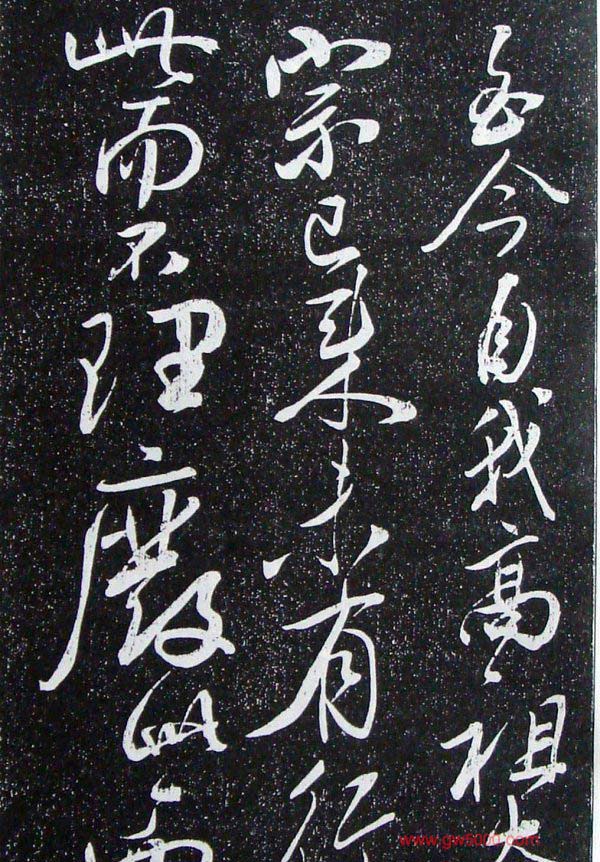 至今自我高祖太
宗已来未有行
此而不理廢此而
www.gw5000.com